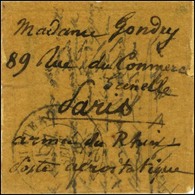 Madame Gondry
89 Rue du Commerce
Grenelle
Paris
armée du Rhin
Poste aérostatique